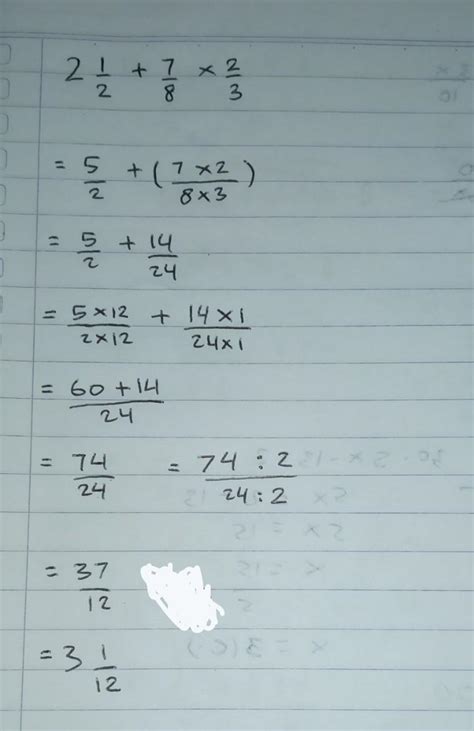 2 1/2 + 7/8 × 2/3
= 5/2 + (7 × 2 / 8 × 3)
= 5/2 + 14/24
= 5 × 12 / 2 × 12 + 14 × 1 / 24 × 1
= 60 + 14 / 24
= 74/24 = 74 : 2 / 24 : 2
= 37/12
= 3 1/12